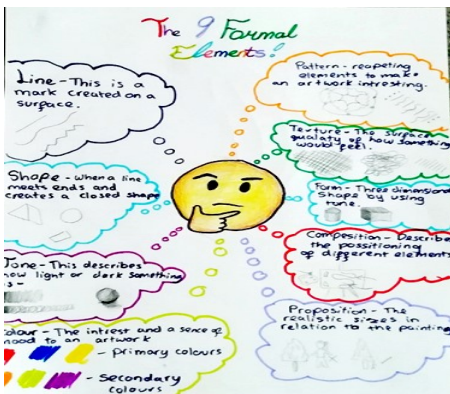 The 9 Formal
Elements!
Line - This is a
mark created on a
surface.
Shape - when a line
meets ends and
creates a closed shape
Tone - This describes
how light or dark something
is -
Colour - The intrest and a sence of
mood to an artwork
- primary colours
- Secondary
colours
Pattern - reapeting
elements to make
an artwork intresting.
Texture - The surface
quality of how something
would feel.
Form - Three dimensional
shape by using
tone.
Composition - Describes
the possitioning
of different elements
Proposition - The
realistic sizes in
relation to the painting